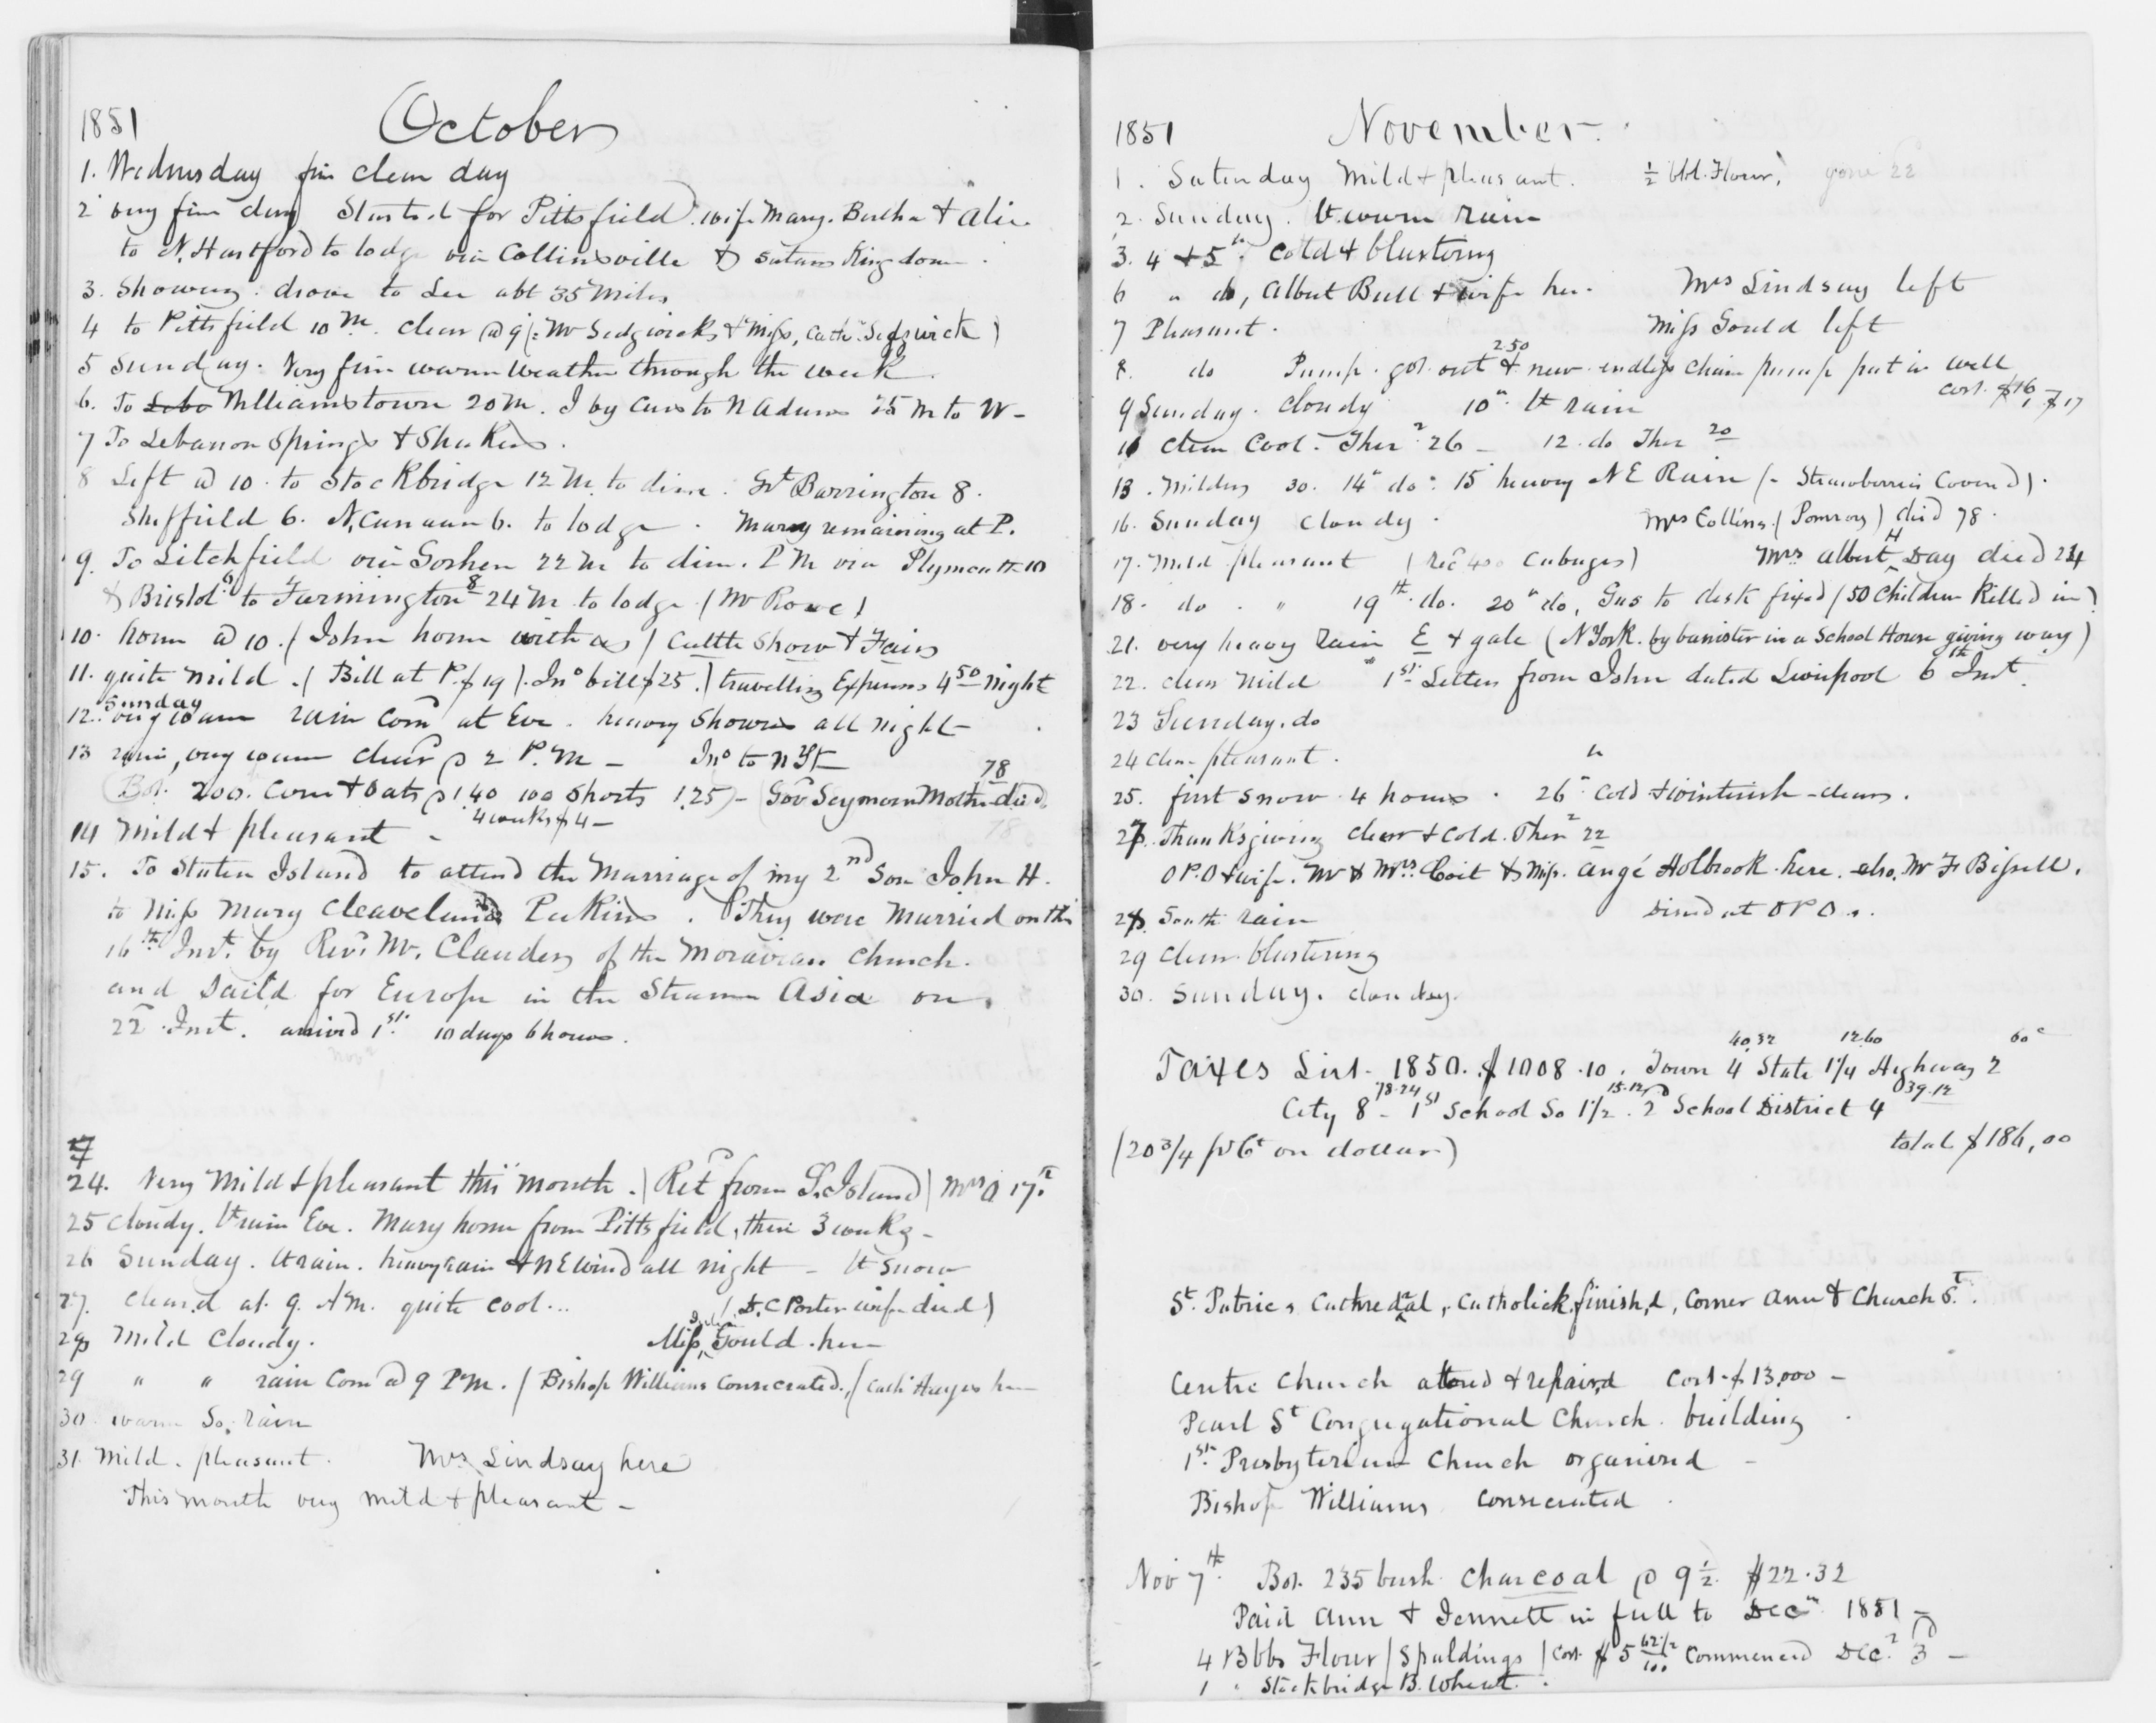 1851 October
1. Wednesday fine clear day
2 very fine day Started for Pittsfield. wife Mary. Bertha & Alice
to N. Hartford to lodge via Collinsville & Satans Kingdom.
3. Showery. drove to Lee abt 35 Miles
4 to Pittsfield 10 m. clear @ 9 (: Mr Sedgwicks & Miss, Cath: Sedgwick)
5 Sunday. Very fine warm weather through the week.
6. To Lebo Williamstown 20 m. I by Cars to N Adams 25 m to W-
7 To Lebanon Springs & Shakers.
8 Left @ 10. to Stockbridge 12 M. to dine. Gt Barrington 8.
Sheffield 6. N, Canaan 6. to lodge. Mary remaining at P.
9. To Litchfield via Goshen 22 m to dine. P M via Plymouth 10
& Bristol 6 to Farmington 8 24 M to lodge (Mr Rowe)
10. home @ 10. (John home with us) Cattle Show & Fair
11. quite mild. (Bill at P. $19). Jno bill $25.) travelling Expenses 4 50 night
12. Sunday very warm rain Comd at Eve. heavy Showers all night
13 rain, very warm cleard @ 2 P.M - Jno to N Yk
Bot. 200. Corn & Oats @ 1.40 100 Shorts 1.25) - (Gov Seymour Mother died, 78
14 Mild & pleasant - 4 weeks $4 -
15. To Staten Island to attend the Marriage of my 2nd Son John H.
to Miss Mary Cleaveland Perkins. They were Married on the
16th Inst. by Revd. Mr. Clauder of the Moravian Church.
and Saild for Europe in the Steamer Asia on
22d Inst. arrived 1st. 10 days 6 hours.
24. Very mild & pleasant this month. (Retd from S. Island) Mrs O 17th
25 cloudy. lt rain Eve. Mary home from Pittsfield, there 3 weeks -
26 Sunday. lt rain. heavy rain & N E wind all night - lt Snow
27. cleard at 9. AM. quite cool... (D. C Porter wife died)
28 Mild Cloudy. Miss, Julia Gould here
29 " " rain Com @ 9 P.M. (Bishop Williams Consecrated.) (Cath Hayes here
30. warm So. rain
31. Mild. pleasant. Mrs Lindsay here
This month very mild & pleasant -
1851 November
1. Saturday Mild & pleasant. ½ bbl. Flour. gone 22
2. Sunday. lt warm rain
3. 4 & 5th. Cold & blustering
6 " do, Albert Bull & wife here. Mrs Lindsay left
7 Pleasant. Miss Gould left
8. do Pump. got out 2.50 & new endless chain pump put in well
cost $16, $17
9 Sunday. cloudy 10" lt rain
11 clear Cool. Ther 26 - 12. do Ther 20
13. Milder 30. 14" do: 15 heavy N E Rain (- Strawberries Coverd).
16. Sunday cloudy. Mrs Collins. (Pomroy) died 78.
17. Mild pleasant (Recd 400 Cabages) Mrs Albert H Day died 24
18. do. " 19th. do. 20" do, Gas to desk fixed (50 Children Killed in)
21. very heavy rain E & gale (N York. by banister in a School House giving way)
22. clear mild " 1st. Letter from John dated Liverpool 6th Inst.
23 Sunday. do
24 clear pleasant. "
25. first snow 4 hours. 26" cold & winterish - clear.
27. Thanksgiving clear & cold. Ther 22
O P. O & wife. Mr & Mrs. Coit & Miss. Ange Holbrook here. also, Mr F. Bissell.
28. South rain Dined at O P O s.
29 clear. blustering
30. Sunday. cloudy.
Taxes List. 1850. $1008.10. Town 4 40.32 State 1¼ 12.60 Highway 2 60c
City 8 - 78.24 1st School So 1½. 15.12 2d School District 4 39.12
(20¾ pr Ct on dollar) total $186,00
St. Patrics Cathredal, Catholick, finish,d, Corner Ann & Church St.
Centre Church altered & repaird Cost $13,000 -
Pearl St Congregational Church. building
1st. Presbyterian Church organised -
Bishop Williams Consecrated
Nov 7th. Bot. 235 bush. Charcoal @ 9½ $22.32
Paid Ann & Jennett in full to Dec" 1851 -
4 Bbls Flour (Spaldings) cost $5 62½/100 Commenced Dec. 3 -
1 " Stockbridge B. Wheat.